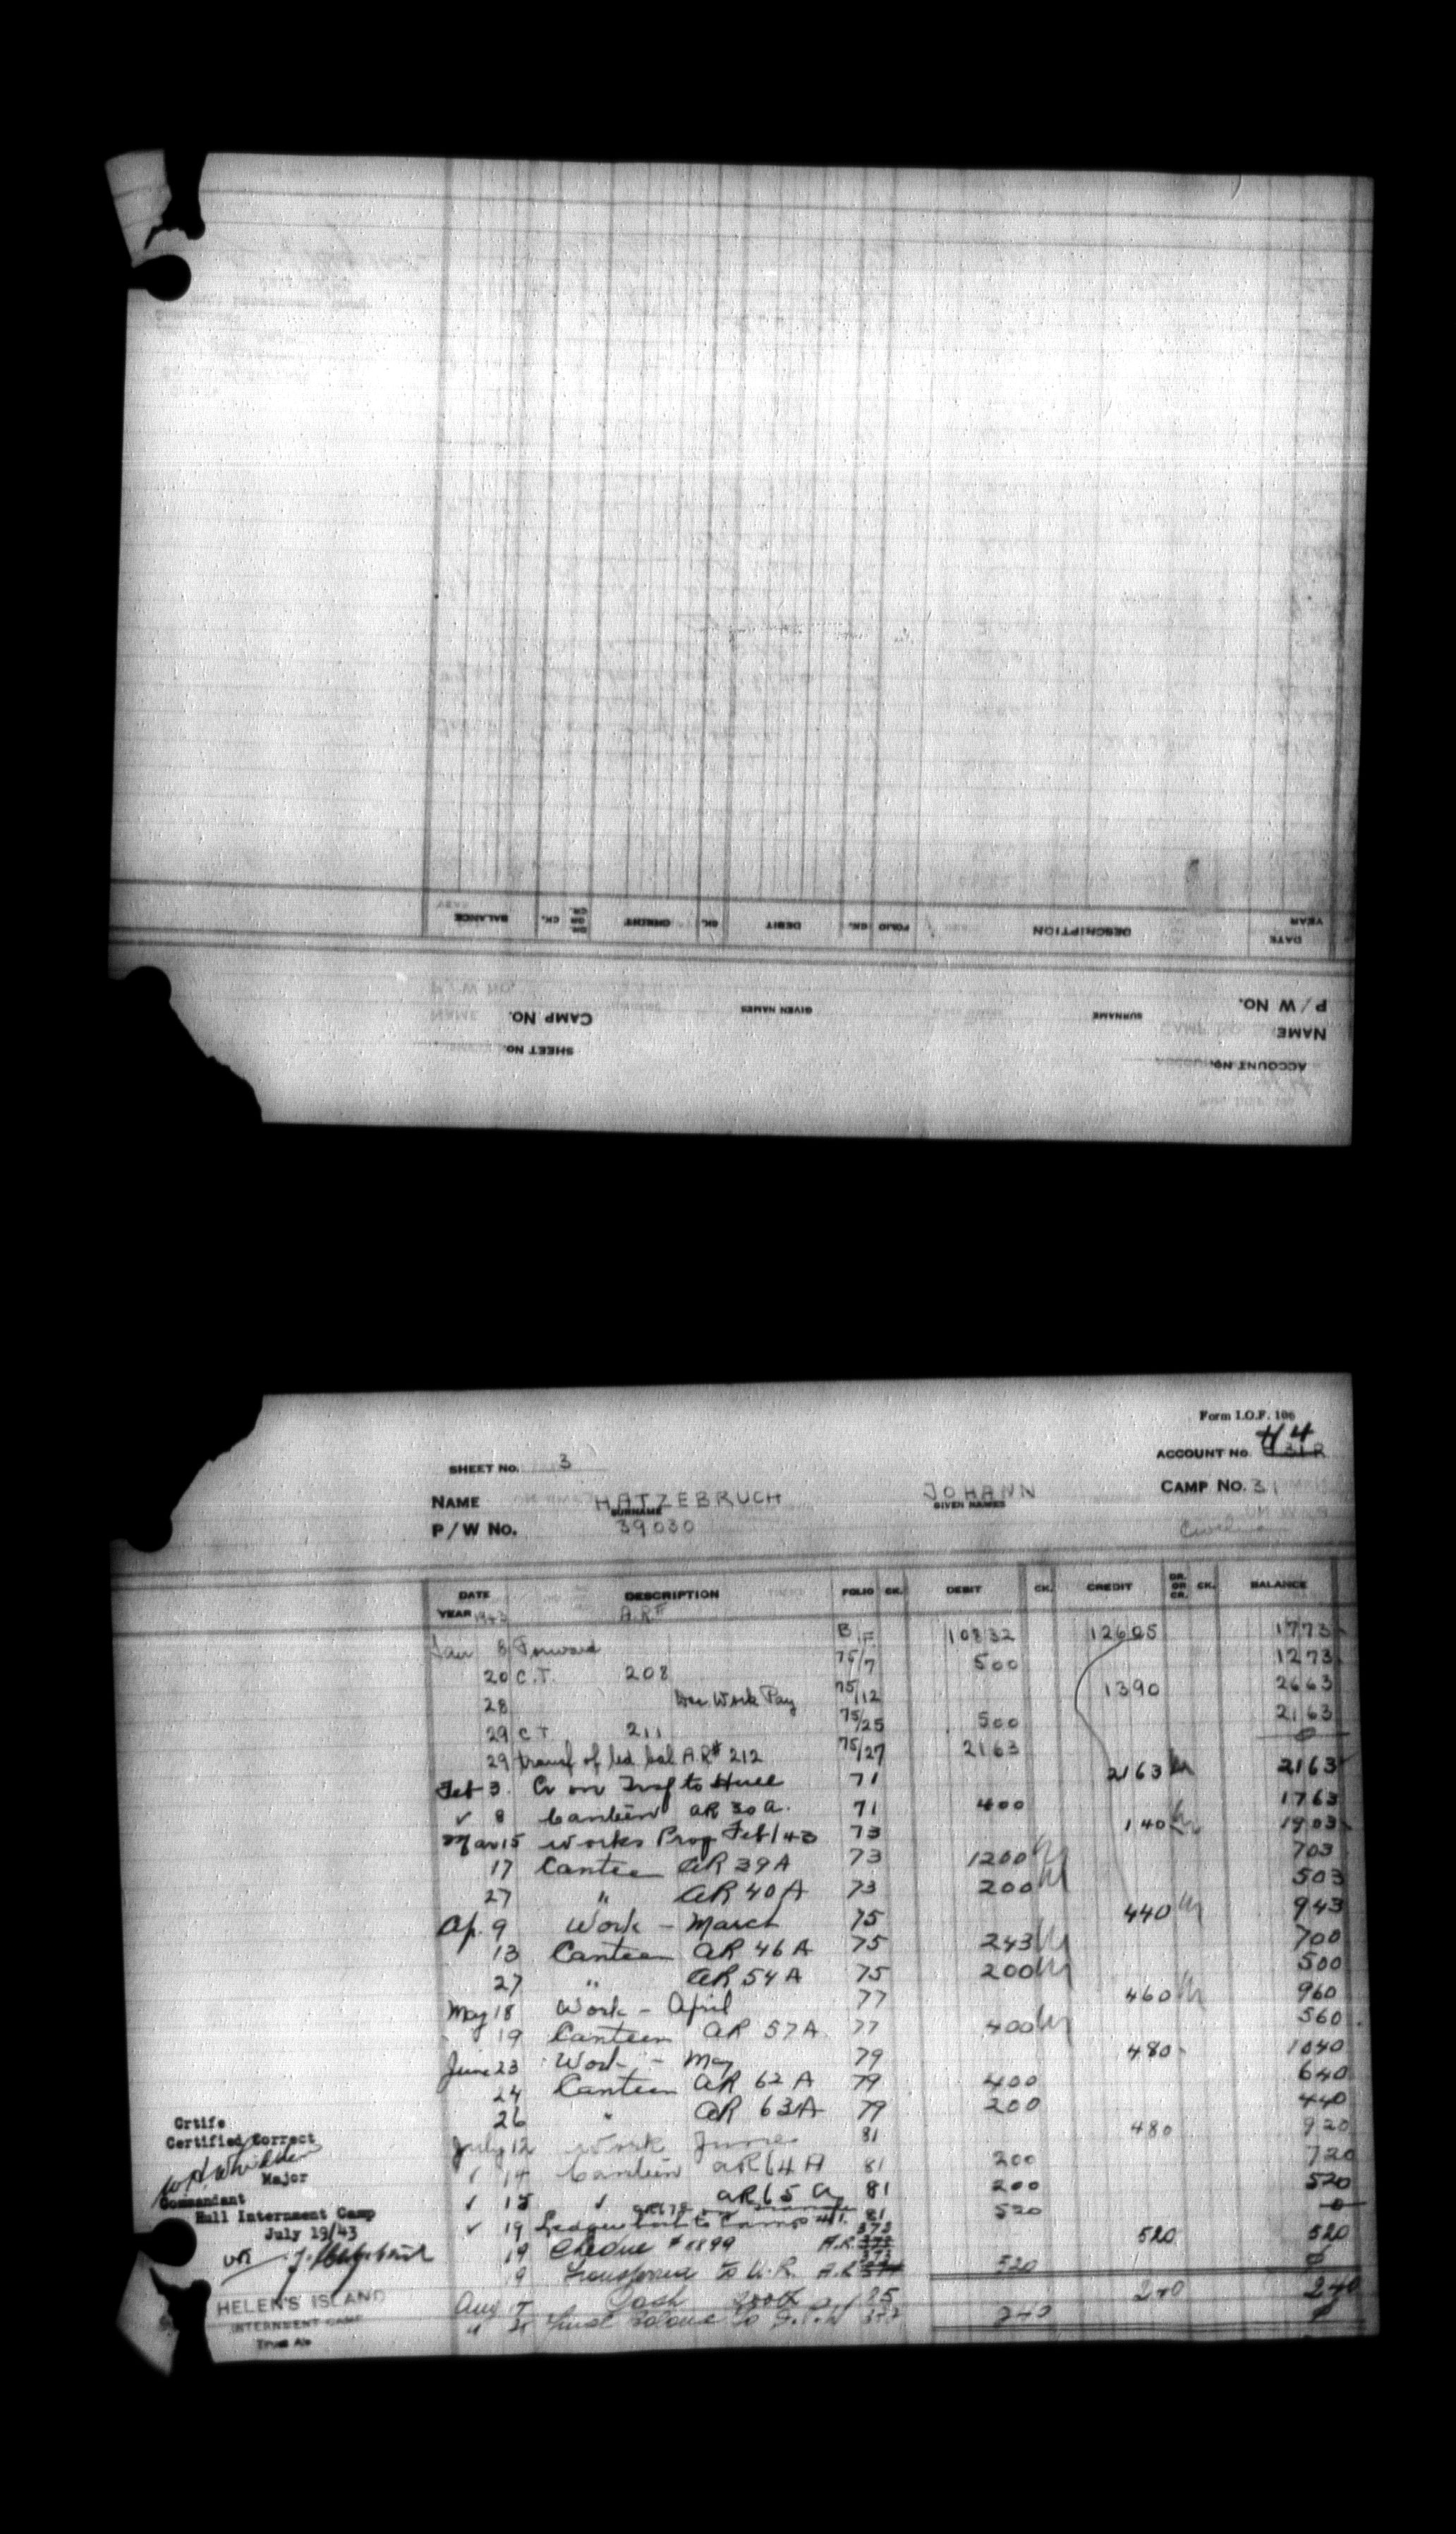 ACCOUNT NO.
SHEET NO.
NAME
SURNAME
GIVEN NAMES
CAMP NO.
P/W NO.
DATE
YEAR
DESCRIPTION
FOLIO CK. DEBIT CK. CREDIT DR. OR CR. CK. BALANCE
Form I.O.F. 106
SHEET NO. 3
ACCOUNT NO. 44
NAME HATZEBRUCH JOHANN CAMP NO. 31
SURNAME GIVEN NAMES
P/W NO. 39030
DATE DESCRIPTION FOLIO CK. DEBIT CK. CREDIT DR. OR CR. CK. BALANCE
YEAR 1943 A.R#
Jan 8 Forward B/F 10832 12605 1773
20 C.T. 208 75/7 500 1273
28 Dec. Work Pay 75/12 1390 2663
29 C.T. 211 75/25 500 2163
29 transf of led bal A.R# 212 75/27 2163 0
Feb 3. Cr on Trsf to Hull 71 2163 2163
✓ 8 Canteen AR 30 A. 71 400 1763
Mar 15 Works Prog Feb/43 73 140 1903
17 Canteen AR 39A 73 1200 703
27 " AR 40A 73 200 503
Ap. 9 Work - March 75 440 943
13 Canteen AR 46A 75 243 700
27 " AR 54A 75 200 500
May 18 Work - April 77 460 960
19 Canteen AR 57A 77 400 560
June 23 Work - May 79 480 1040
24 Canteen AR 62A 79 400 640
26 " AR 63A 79 200 440
July 12 Work June 81 480 920
✓ 14 Canteen AR 64A 81 200 720
✓ 15 ✓ AR 65 A 81 200 520
✓ 19 Ledger to Camp 41. 81 520 0
19 Cheque # A.R. 373 520 520
9 Transferred to U.R. A.R. 373 520 0
Aug Cash 25 240 240
" Final Balance to 240 0
Crtife
Certified Correct
Major
Commandant
Hull Internment Camp
July 19/43
HELEN'S ISLAND
INTERNMENT CAMP
Trust A/c